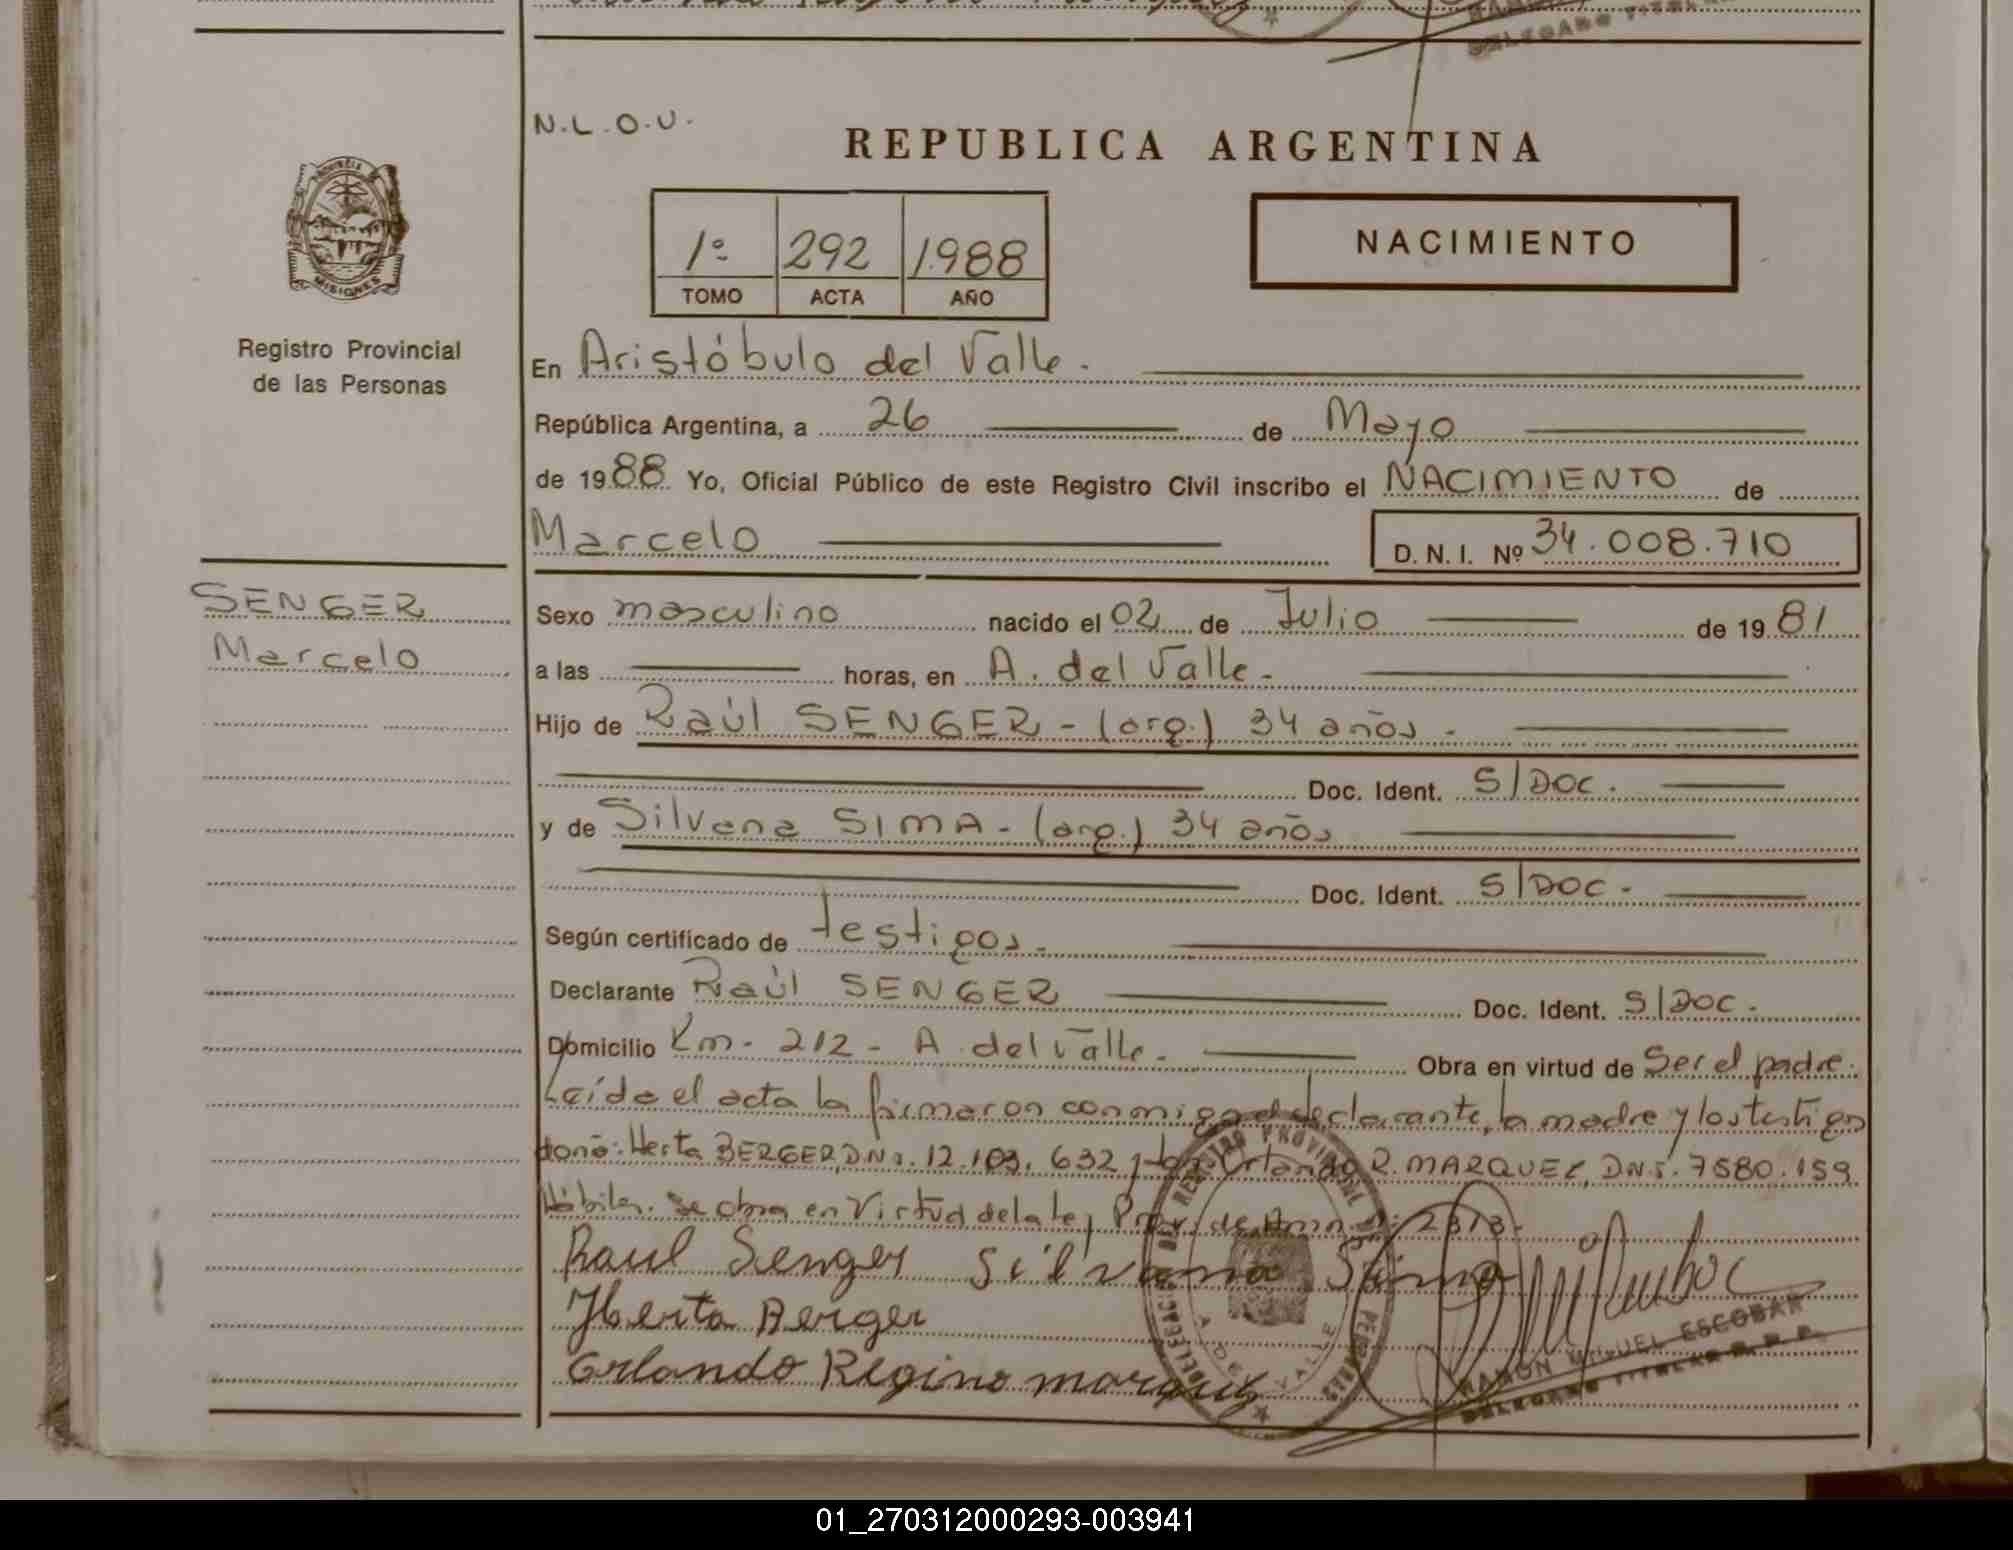 N.L.O.U.
REPUBLICA ARGENTINA
PROVINCIA DE
MISIONES
1º 292 1988
TOMO ACTA AÑO
NACIMIENTO
Registro Provincial
de las Personas
En Aristóbulo del Valle.
República Argentina, a 26 de Mayo
de 1988 Yo, Oficial Público de este Registro Civil inscribo el NACIMIENTO de
Marcelo D.N.I. Nº 34.008.710
SENGER
Marcelo
Sexo masculino nacido el 02 de Julio de 1981
a las horas, en A. del Valle.
Hijo de Raúl SENGER - (arg.) 34 años.
Doc. Ident. S/DOC.
y de Silvana SIMA - (arg.) 34 años
Doc. Ident. S/DOC.
Según certificado de testigos.
Declarante Raúl SENGER Doc. Ident. S/DOC.
Domicilio Km. 212 - A. del Valle. Obra en virtud de Ser el padre.
Leída el acta la firmaron conmigo el declarante, la madre y los testigos
doña: Herta BERGER, DNI. 12.103.632 y don Orlando R. MARQUEZ, DNI. 7580.159
Hábiles. Se obra en Virtud de la ley Prov. de 2313.
Raul Senger Silvana Sima
Herta Berger
Orlando Regino marquez
RAMON MIGUEL ESCOBAR
DELEGADO TITULAR R. P. P.
01_270312000293-003941